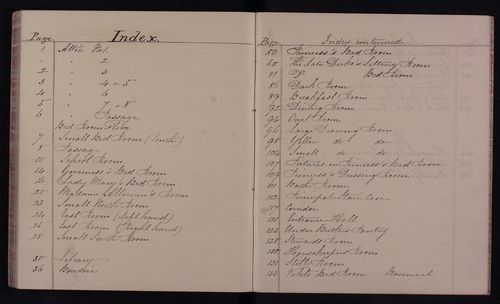 Page Index.
1 Attic No 1.
" " 2
2 " 3
3 " 4 & 5
4 " 6
5 " 7 & 8
6 " Passage
Bed Room Floor
7 Small Bed Room (South)
8 Passage
10 School Room
14 Governess's Bed Room
16 Lady Mary's Bed Room
20 Madame Room
23 Small North Room
24 East Room (Left hand)
25 East Room (Right hand)
28 Small South Room
30 Library
36 Boudoir
Page Index continued
50 Bed Room
60 The late Duke's Sitting Room
81 Do Bed Room
86 Dark Room
89 Breakfast Room
90 Dining Room
94 Oval Room
96 Large Drawing Room
98 Yellow do do
104 Small do do
107 Pictures in Bed Room
109 Dressing Room
111 Bath Room
112 Principal Stair Case
117 Corridor
121 Entrance Hall
123 Under Butlers Pantry
128 Stewards Room
130 Housekeepers Room
131 Still Room
133 Valets Bed Room Basement